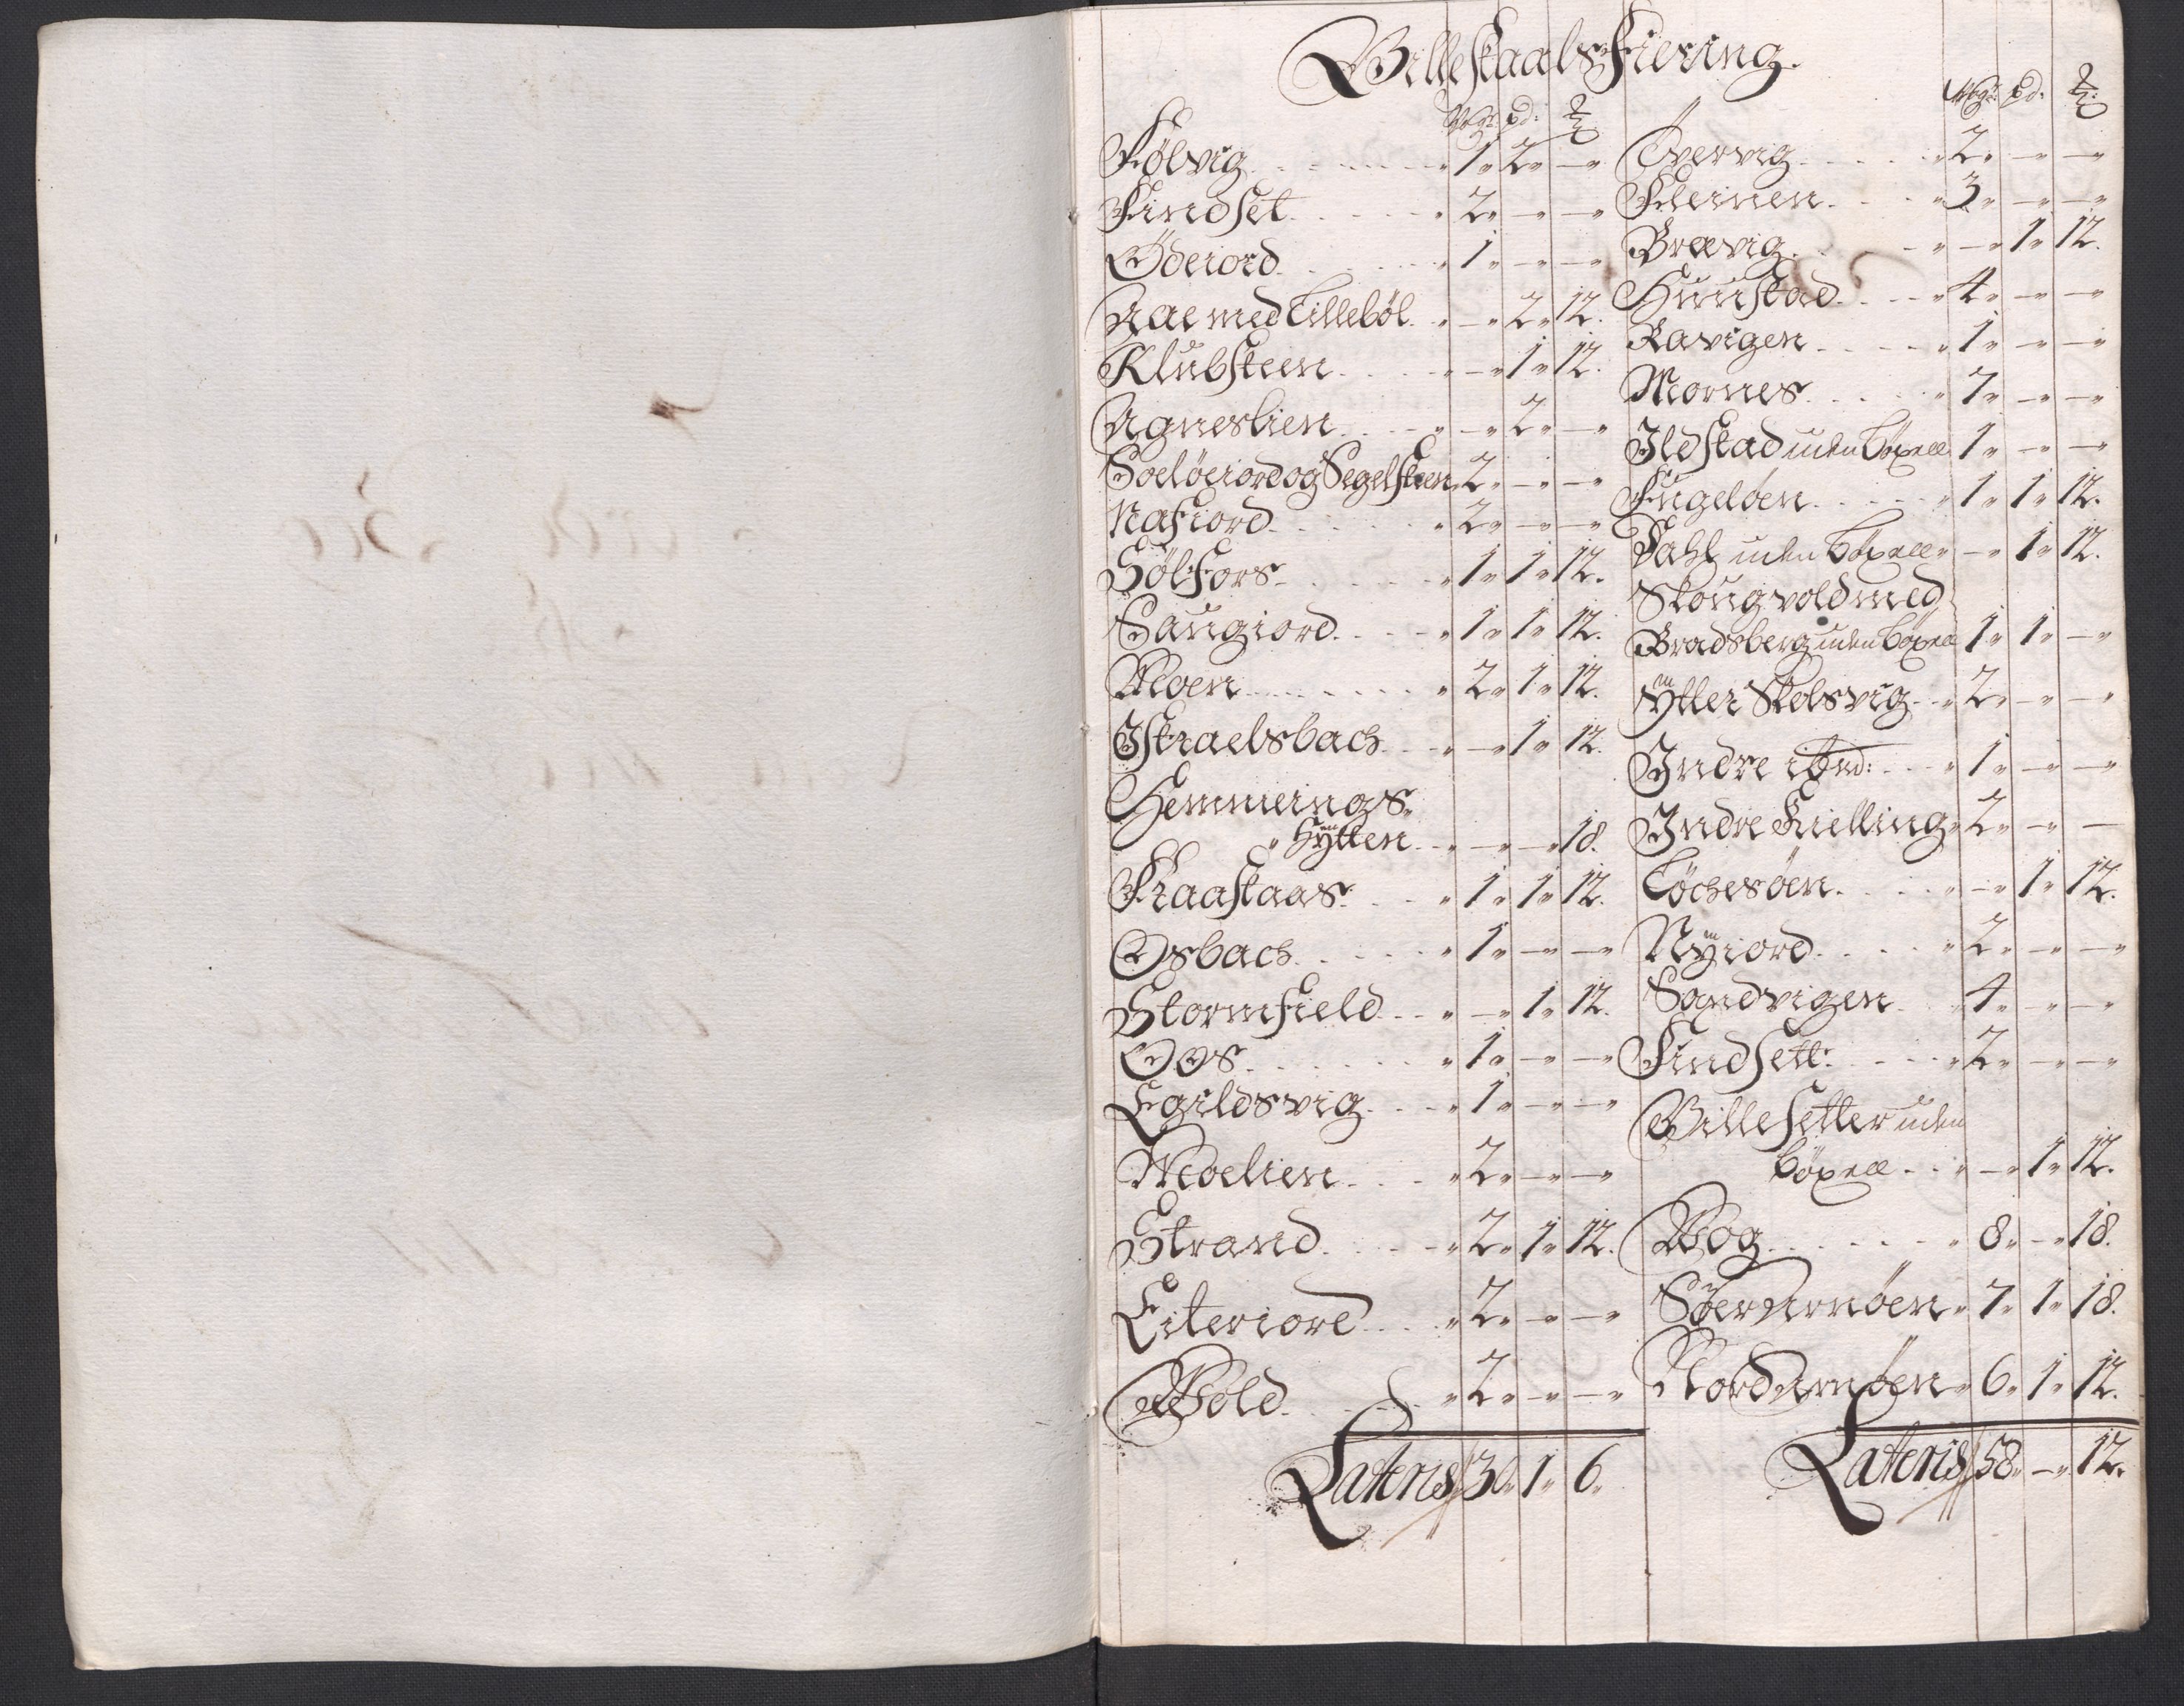 Gilleskaals Fiering.
Wog: pd: ℔:
Følvig - - - - - 1. 2. —
Findset - - - - 2. — —
Ödeiord - - - - 1. — —
Aae med Lillebøl - — 2. 12.
Klubsteen - - - — 1. 12.
Agneslien - - - — 2. —
Soelöeiord og Segelsteen 2. — —
Nafiord - - - - 2. — —
Hølfors - - - - 1. 1. 12.
Saugiord - - - - 1. 1. 12.
Moen - - - - - 2. 1. 12.
Iskraelsbach - - — 1. 12.
Hemmings
Hÿtten - - — — 18.
Kraakaas - - - 1. 1. 12.
Osbach - - - - 1. — —
Stormfield - - - — 1. 12.
Oos - - - - - 1. — —
Egildsvig - - - 1. — —
Moelien - - - 2. — —
Strand - - - - 2. 1. 12.
Eiteriord - - - 2. — —
Wold - - - - 2. — —
Lateris 30. 1. 6.
Wog: pd: ℔:
Övervig - - - - 2. — —
Fleinen - - - - 3. — —
Brævig - - - — 1. 12.
Hunstad - - - - 4. — —
Ravigen - - - - 1. — —
Mornes - - - - 7. — —
Ildstad uden böxell 1. — —
Fugelöen - - - - 1. 1. 12.
Dahl uden böxell — 1. 12.
Skougvold med
Bradsberg uden böxell 1. 1. —
Ÿtter Skelsvig - - 2. — —
Indre ibid: - - - 1. — —
Indre Kielling 2. — —
Löchesöen - - - — 1. 12.
Nÿiord - - - - 2. — —
Sandvigen - - 4. — —
Findsett: - - - 2. — —
Gillesetter uden
böxell - - — 1. 12.
Wog - - - - - 8. — 18.
Söer Arnöen 7. 1. 18.
Nord Arnöen 6. 1. 12.
Lateris 58. — 12.